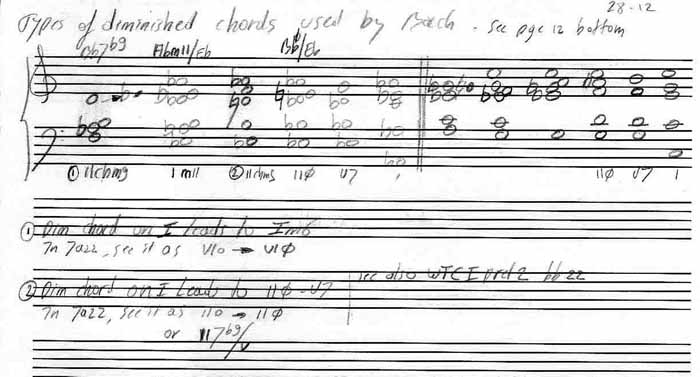 28-12
Types of diminished chords used by Bach - see pge 12 bottom
Bb7b9 Abm11/Eb Bbø/Eb
① I m11 ② IIø V7 I IIø V7 I
① Dim chord on I leads to Im6
In Jazz, see it as VIo → VIø
② Dim chord on I leads to IIø - V7
In Jazz, see it as IIo → IIø
or II7b9/V
see also WTC I prel 2 bb 22